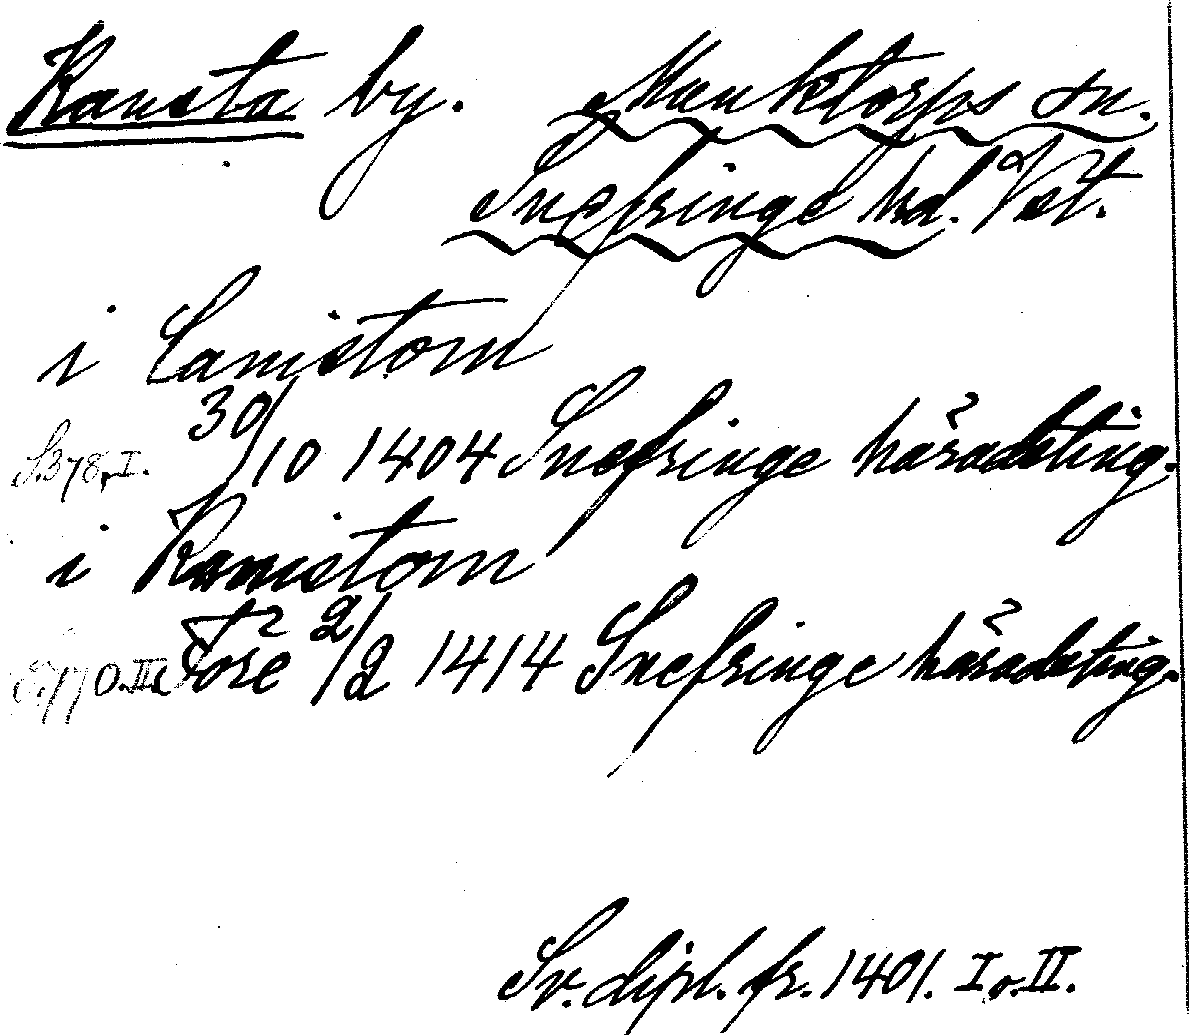 Kamsta by. Munktorps sn.
Snefringe hd. Vst.
i Camistom
S. 378, I. 30/10 1404 Snefringe häradsting.
i Kamistom
S. 770. II. Före 2/2 1414 Snefringe häradsting.
Sv. dipl. fr. 1401. I o. II.